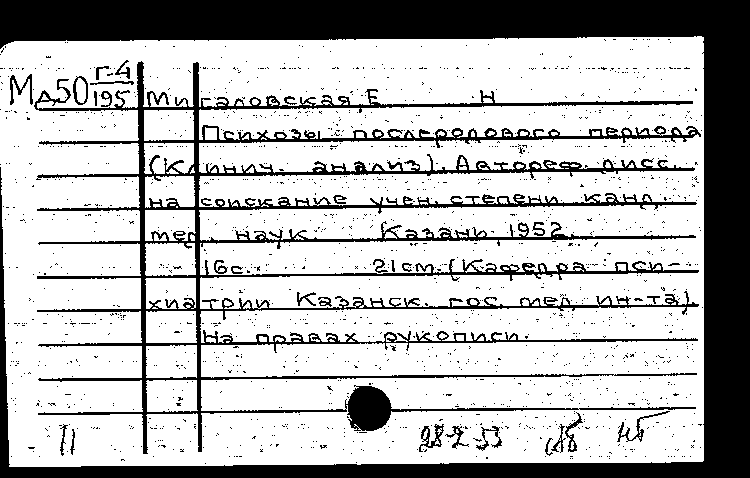 Мд50 Г-4
195
Мигаловская, Е Н
Психозы послеродового периода
(Клинич. анализ). Автореф. дисс.
на соискание учен. степени канд.
мед. наук. Казань, 1952.
16с. 21см. (Кафедра пси-
хиатрии Казанск. гос. мед. ин-та).
На правах рукописи.
11 28-2 53